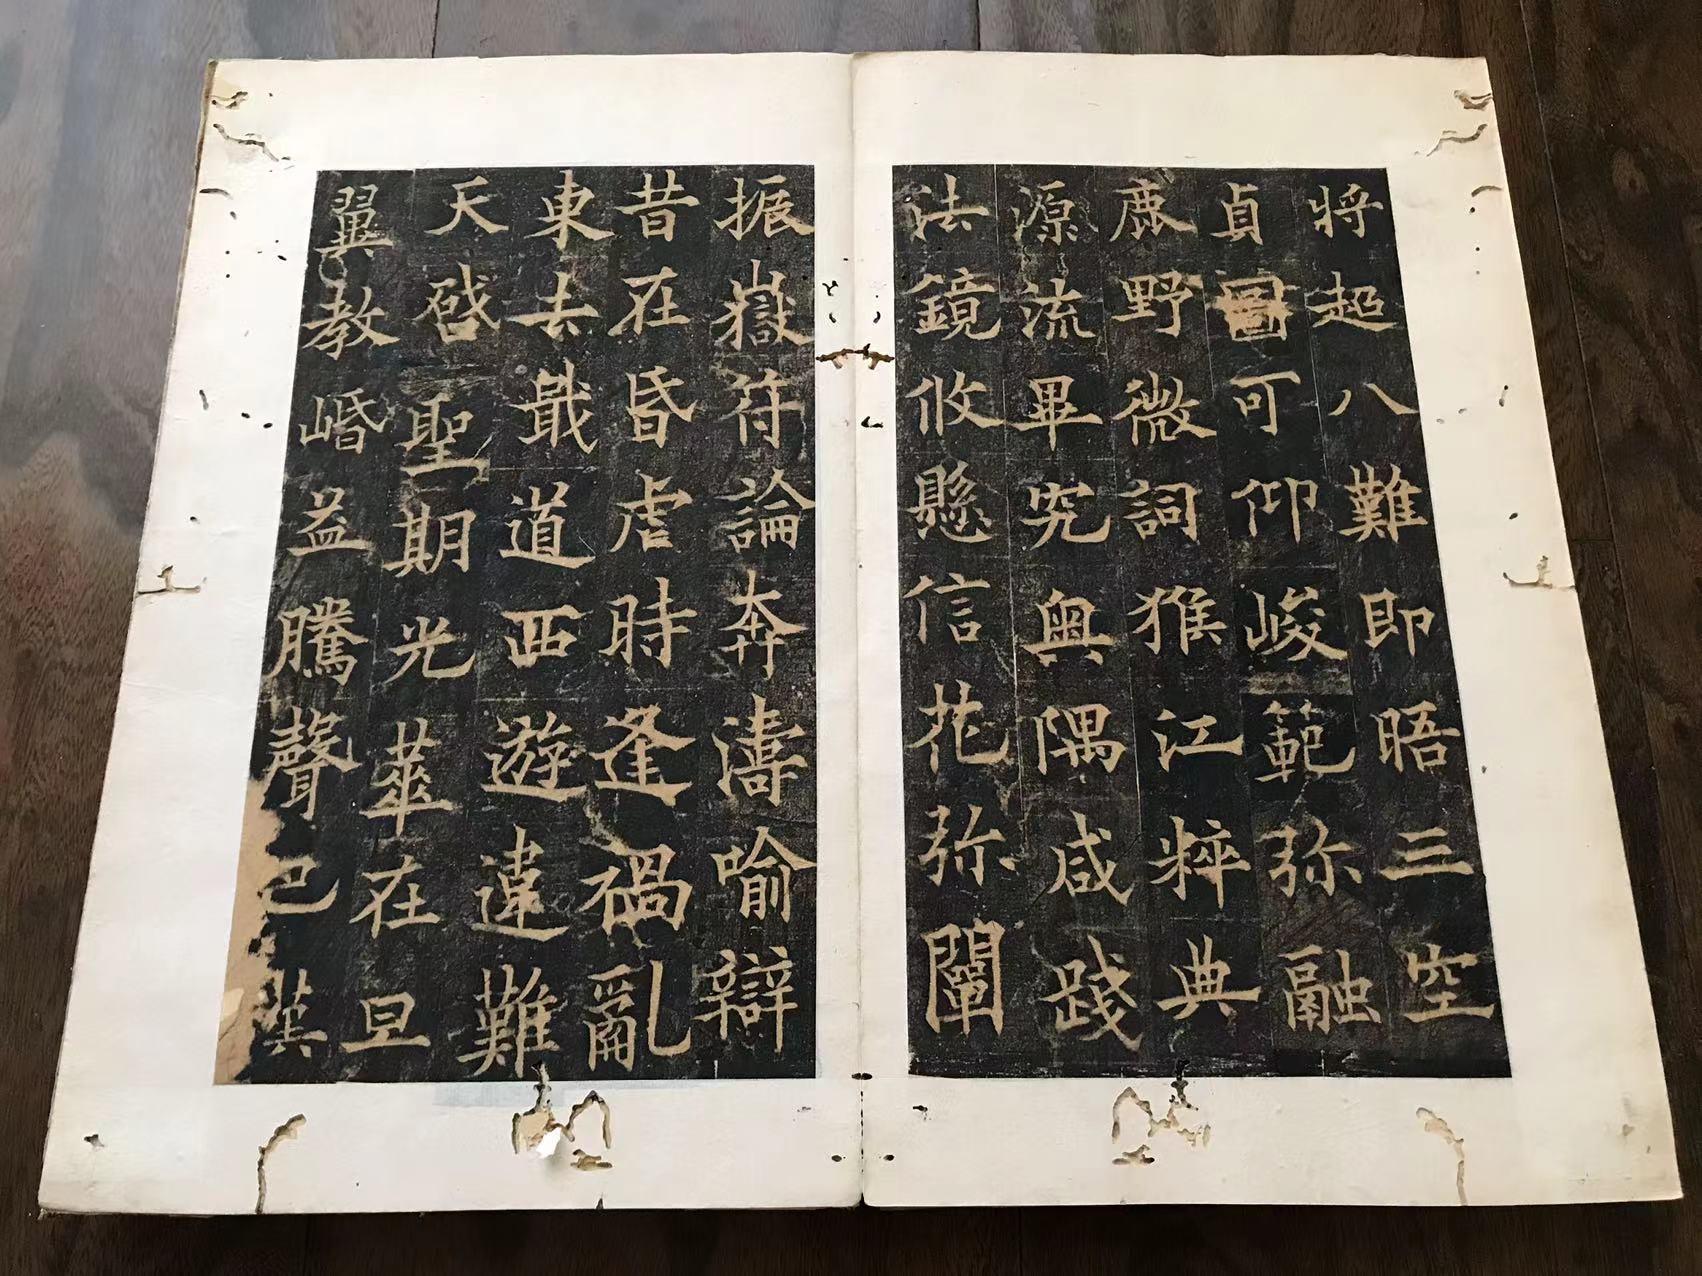 將超八難即晤三空
貞圖可仰峻範弥融
鹿野微詞猴江粹典
源流畢究奥隅咸踐
法鏡攸懸信花弥闡
振嶽符論奔濤喻辯
昔在昏虐時逢禍亂
東去戢道西遊違難
天啓聖期光華在旦
翼教緡益騰聲已蒖